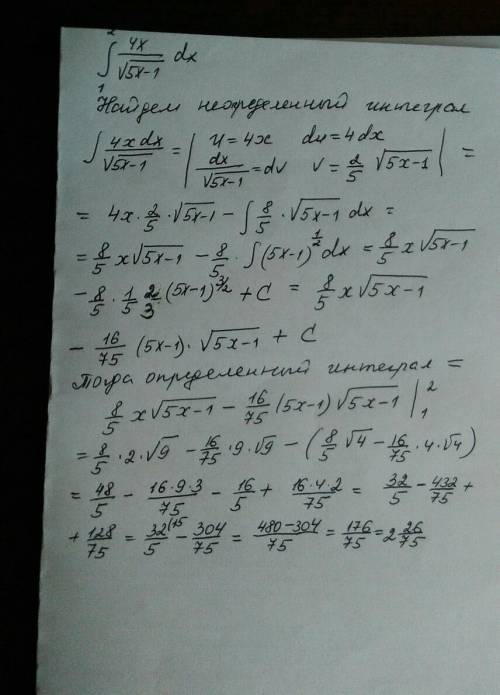 ∫₁² 4x/√(5x-1) dx
Найдем неопределенный интеграл
∫ 4x dx/√(5x-1) = | u = 4x du = 4dx dx/√(5x-1) = dv v = 2/5 √(5x-1) | =
= 4x · 2/5 · √(5x-1) - ∫ 8/5 · √(5x-1) dx =
= 8/5 x √(5x-1) - 8/5 · ∫ (5x-1)^(1/2) dx = 8/5 x √(5x-1)
- 8/5 · 1/5 · 2/3 (5x-1)^(3/2) + C = 8/5 x √(5x-1)
- 16/75 (5x-1) · √(5x-1) + C
Тогда определенный интеграл =
8/5 x √(5x-1) - 16/75 (5x-1) √(5x-1) |₁²
= 8/5 · 2 · √9 - 16/75 · 9 · √9 - (8/5 √4 - 16/75 · 4 · √4)
= 48/5 - 16·9·3/75 - 16/5 + 16·4·2/75 = 32/5 - 432/75 +
+ 128/75 = 32/5 (15 - 304/75 = 480-304/75 = 176/75 = 2 26/75